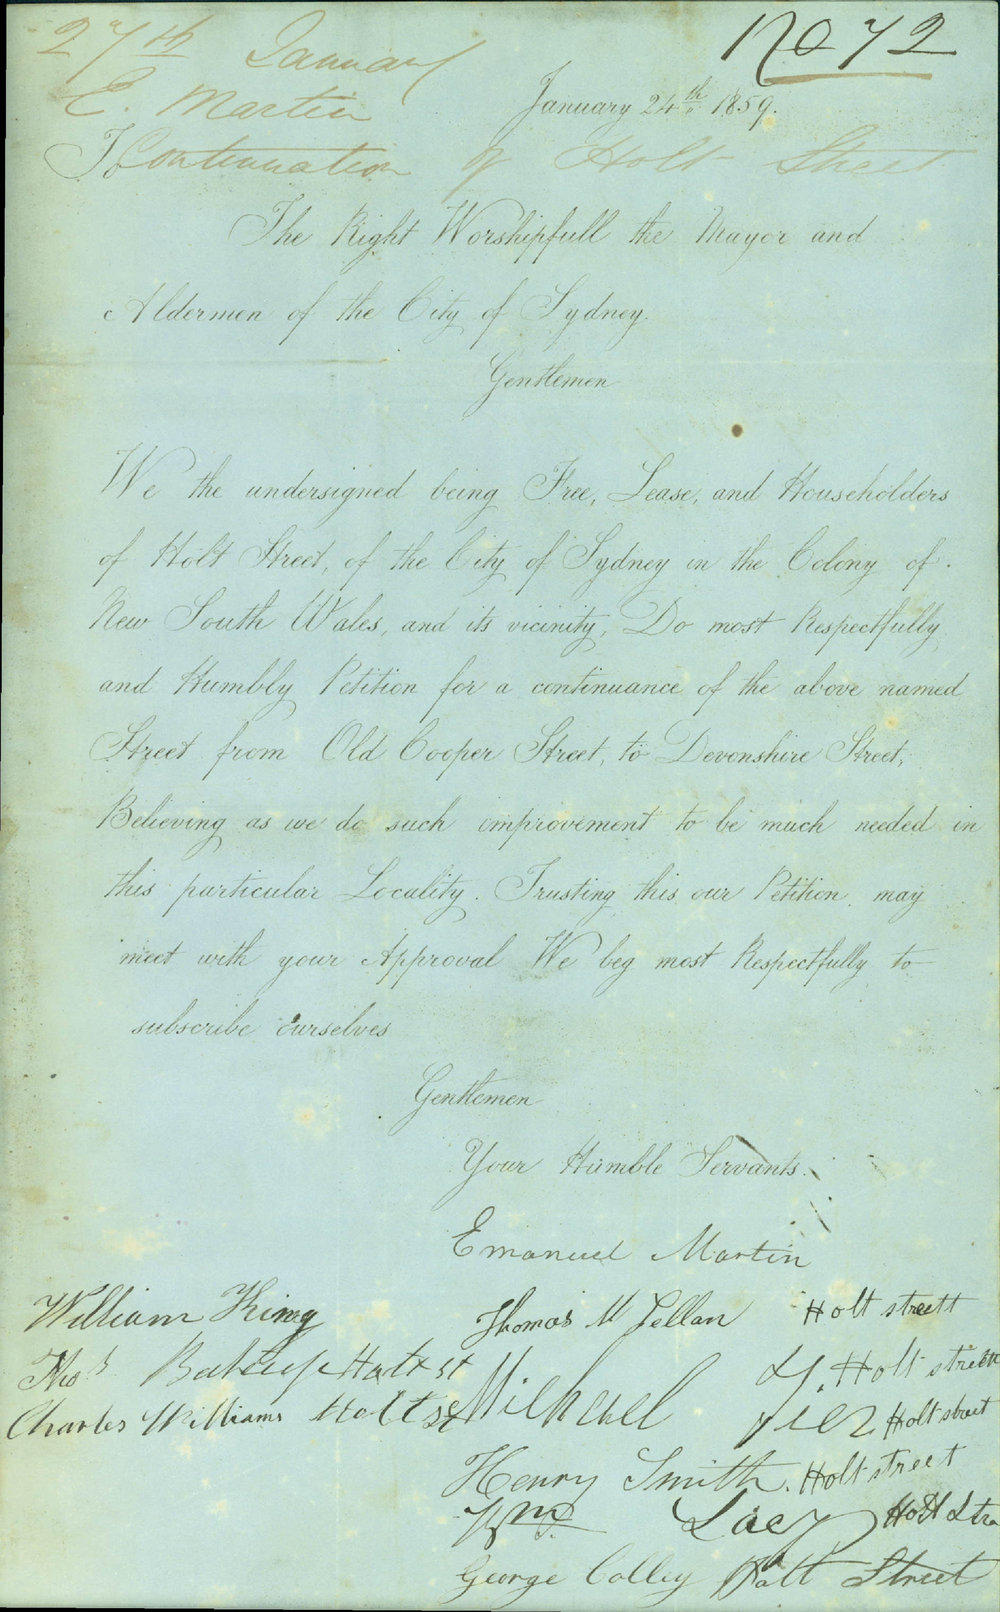 No 72
27th January
E. Martin
Continuation of Holt Street
January 24th 1859.
To
The Right Worshipfull the Mayor and
Aldermen of the City of Sydney.
Gentlemen
We the undersigned being Free, Lease, and Householders
of Holt Street, of the City of Sydney in the Colony of
New South Wales, and its vicinity, Do most Respectfully
and Humbly Petition for a continuance of the above named
Street from Old Cooper Street, to Devonshire Street,
Believing as we do such improvement to be much needed in
this particular Locality. Trusting this our Petition may
meet with your Approval We beg most Respectfully to
subscribe ourselves
Gentlemen
Your Humble Servants.
Emanuel Martin
William King
Thos Holt st
Charles Williams Holt st
Thomas Mc Lellan Holt streett
Michael Holt street
Holt street
Henry Smith. Holt street
Wm Lacy Holt Stre
George Colley Holt Street